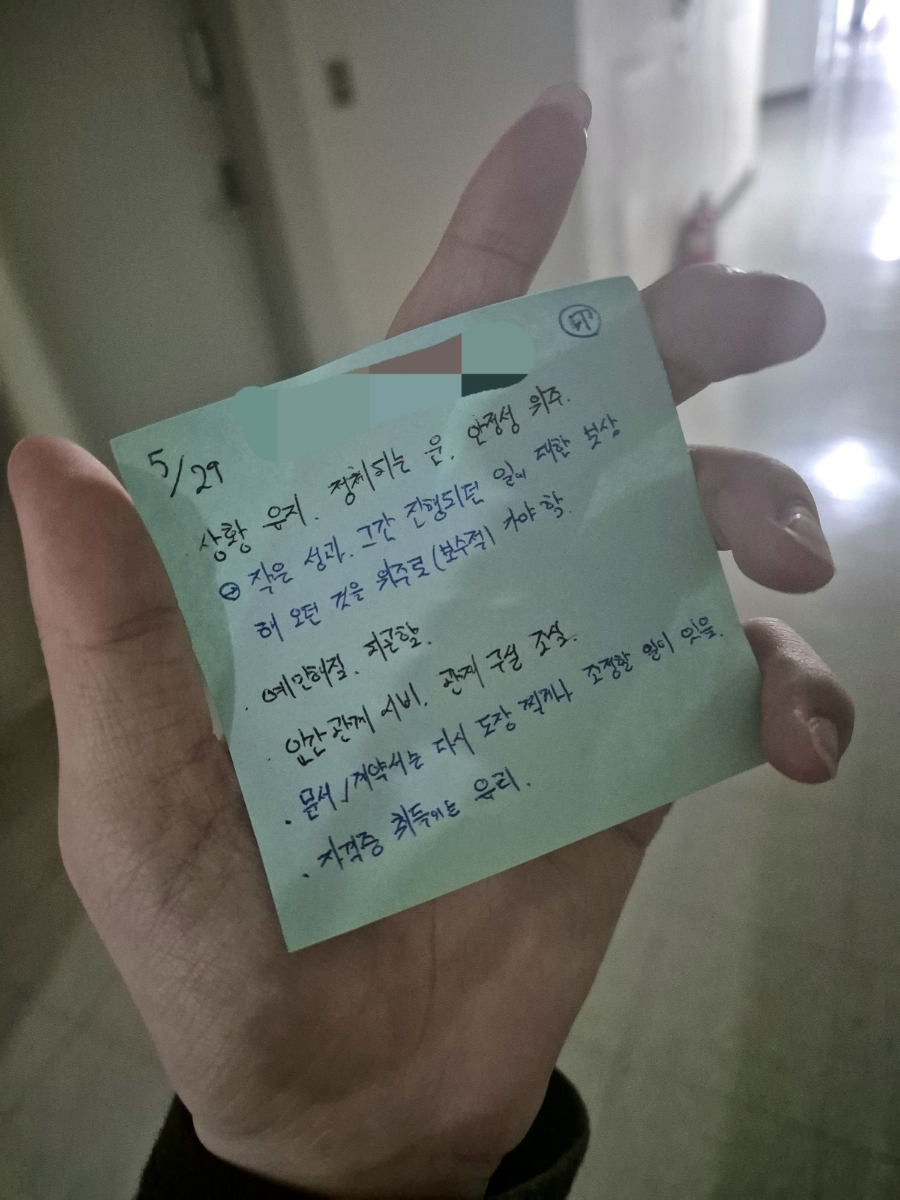 5/29
· 상황 유지. 정체되는 운. 안정성 위주.
작은 성과. 그간 진행되던 일에 대한 보상
해 오던 것을 위주로 (보수적) 가야 함.
· 예민해짐. 피곤함.
· 인간관계 시비. 관재 구설 조심.
· 문서/계약서는 다시 도장 찍거나 조정할 일이 있음.
· 자격증 취득에는 유리.